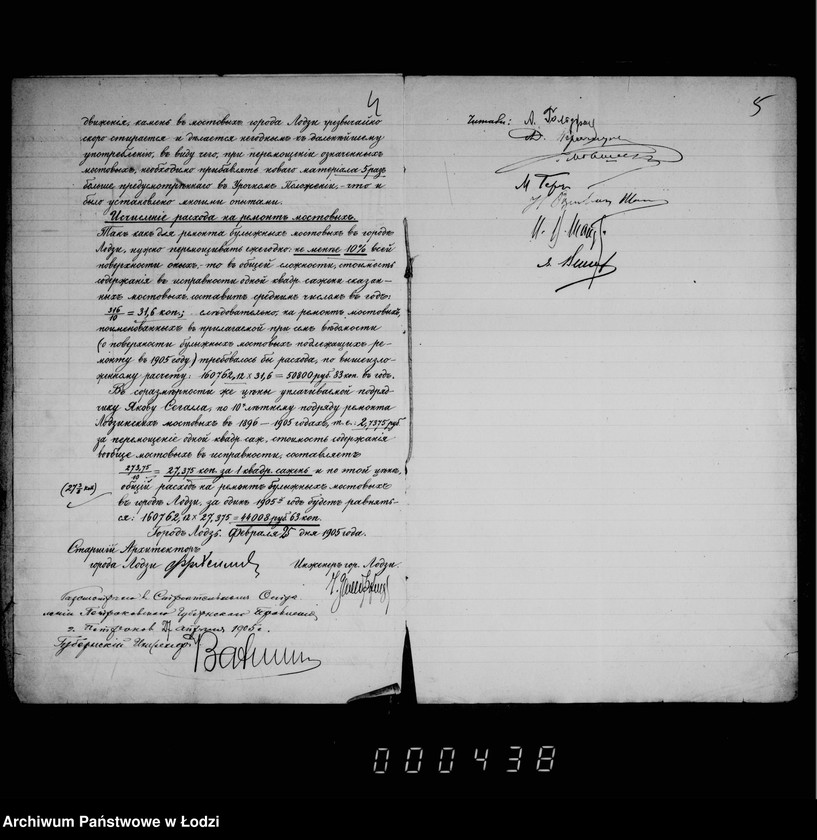 4
движенія, камень въ мостовыхъ города Лодзи чрезвычайно
скоро стирается и дѣлается негоднымъ къ дальнѣйшему
употребленію, въ виду чего, при перемощеніи означенныхъ
мостовыхъ, необходимо прибавлять новаго матеріала 5 разъ
больше предусмотрѣннаго въ Урочномъ Положеніи, что и
было установлено многими опытами.
Исчисленіе расхода на ремонтъ мостовыхъ.
Такъ какъ для ремонта булыжныхъ мостовыхъ въ городѣ
Лодзи, нужно перемощивать ежегодно не менѣе 10% всей
поверхности оныхъ, то въ общей сложности, стоимость
содержанія въ исправности одной квадр. сажени сказан-
ныхъ мостовыхъ составитъ среднимъ числомъ въ годъ:
316/10 = 31,6 коп.; слѣдовательно, на ремонтъ мостовыхъ,
поименованныхъ въ прилагаемой при семъ вѣдомости
(о поверхности булыжныхъ мостовыхъ подлежащихъ ре-
монту въ 1905 году) требовалось бы расхода, по вышеизло-
женному расчету: 160762,12 × 31,6 = 50800 руб. 83 коп. въ годъ.
Въ соразмѣрности же цѣны уплачиваемой подряд-
чику Якову Сегалла, по 10 лѣтнему подряду ремонта
Лодзинскихъ мостовыхъ въ 1896 – 1905 годахъ, т. е.: 2,7375 руб
за перемощеніе одной квадр. саж., стоимость содержанія
вообще мостовыхъ въ исправности, составляетъ
273,75/10 = 27,375 коп. за 1 квадр. сажень и по этой цѣнѣ,
(27 3/8 коп)
общій расходъ на ремонтъ булыжныхъ мостовыхъ
въ городѣ Лодзи, за одинъ 1905й годъ будетъ равнять-
ся: 160762,12 × 27,375 = 44008 руб. 63 коп.
Городъ Лодзь. Февраля 25 дня 1905 года.
Старшій Архитекторъ
города Лодзи
Инженеръ гор. Лодзи.
Разсмотрѣна въ Строительномъ Отдѣ-
леніи Петроковскаго Губернскаго Правленія
г. Петроковъ Апрѣля 1905 г.
Губернскій Инженеръ
5
Читали:
000438
Archiwum Państwowe w Łodzi